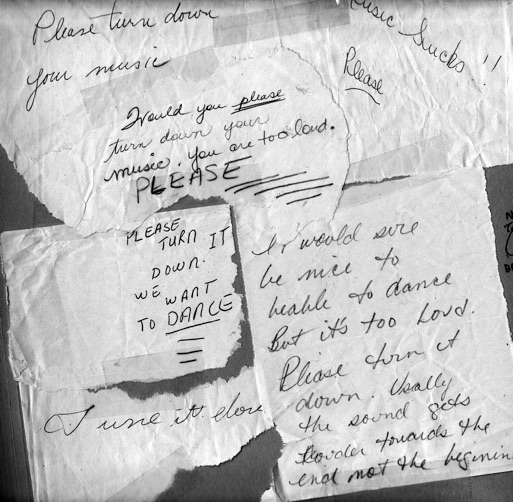 Please turn down
your music
music sucks!!
Please
Would you please
turn down your
music. You are too loud.
PLEASE
PLEASE
TURN IT
DOWN.
WE WANT
TO DANCE
It would sure
be nice to
beable to dance
But it's too Loud.
Please turn it
down. Usally
the sound gets
Louder towards the
end not the beginin
Tune it down